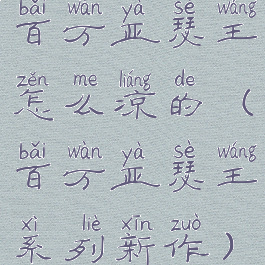 bǎi wàn yà sè wáng
百万亚瑟王
zěn me liáng de
怎么凉的（
bǎi wàn yà sè wáng
百万亚瑟王
xì liè xīn zuò
系列新作）